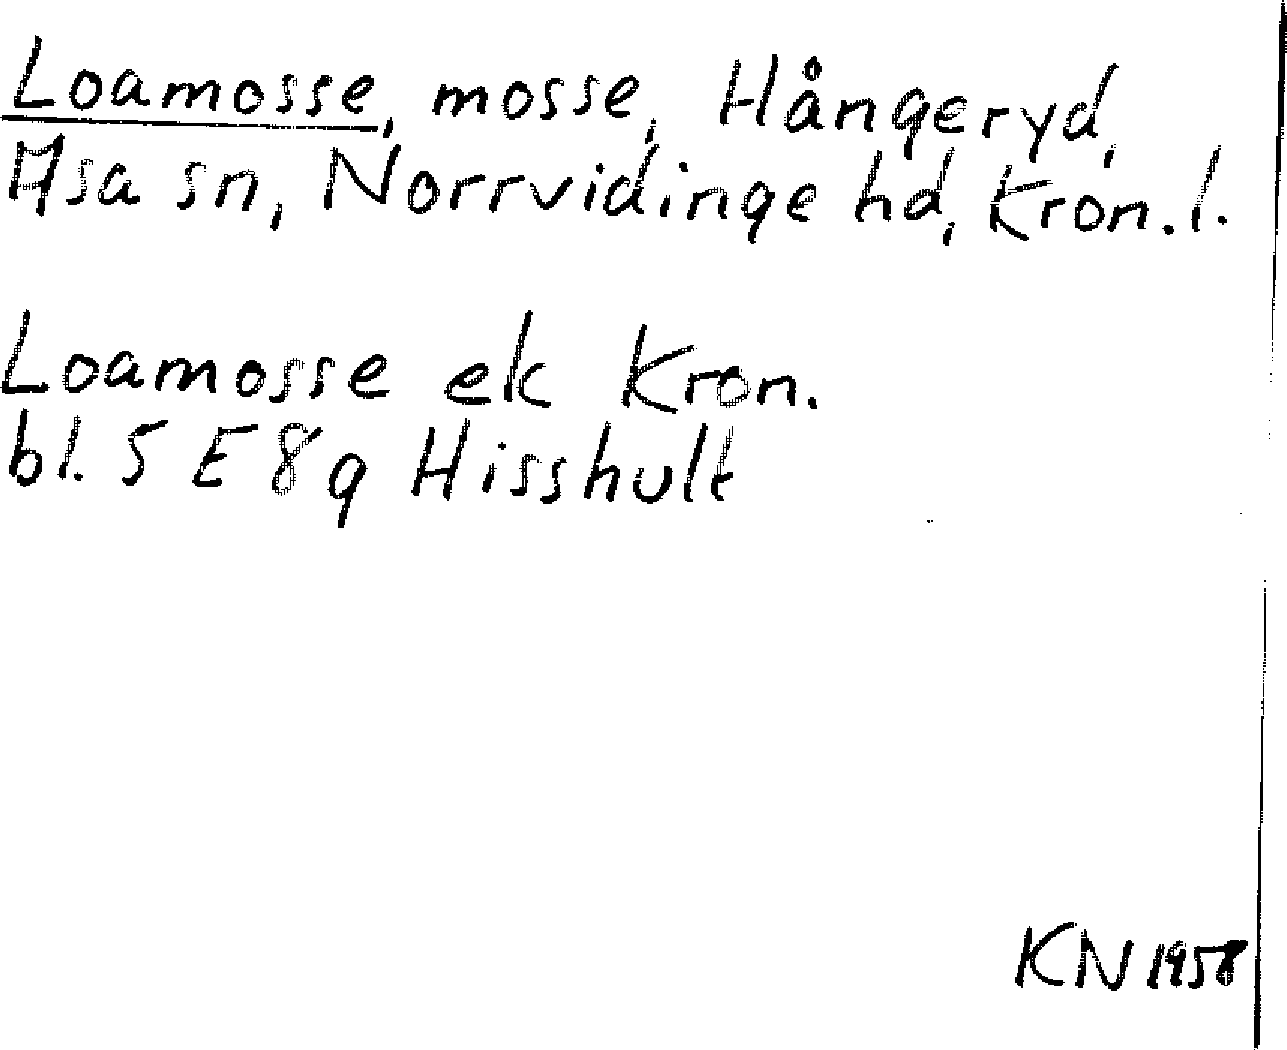 Loamosse, mosse, Hångeryd,
Asa sn, Norrvidinge hd, Kron. l.
Loamosse ek Kron.
bl. 5 E 8 g Hisshult
KN 1958